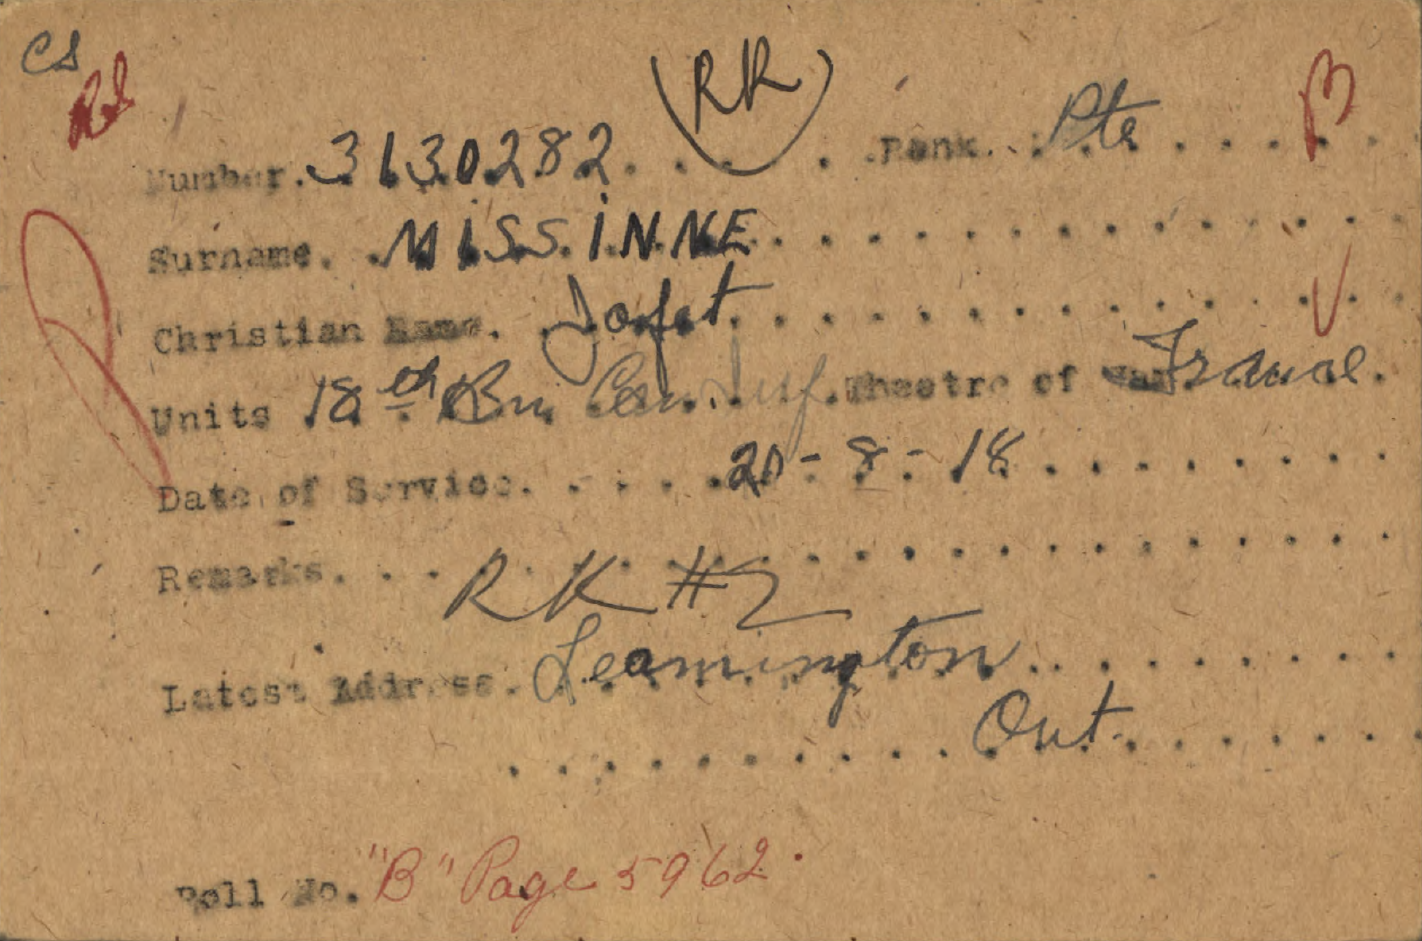 CS
(RR)
B
Number. 3130282. Rank. Pte
Surname. MISSINNE
Christian Name. Jofet
Units 18th Bn Can Inf. Theatre of War. France.
Date of Service. 20-8-18
Remarks.
RR #2
Latest Address. Leamington
Ont.
Roll No. "B" Page 5962.